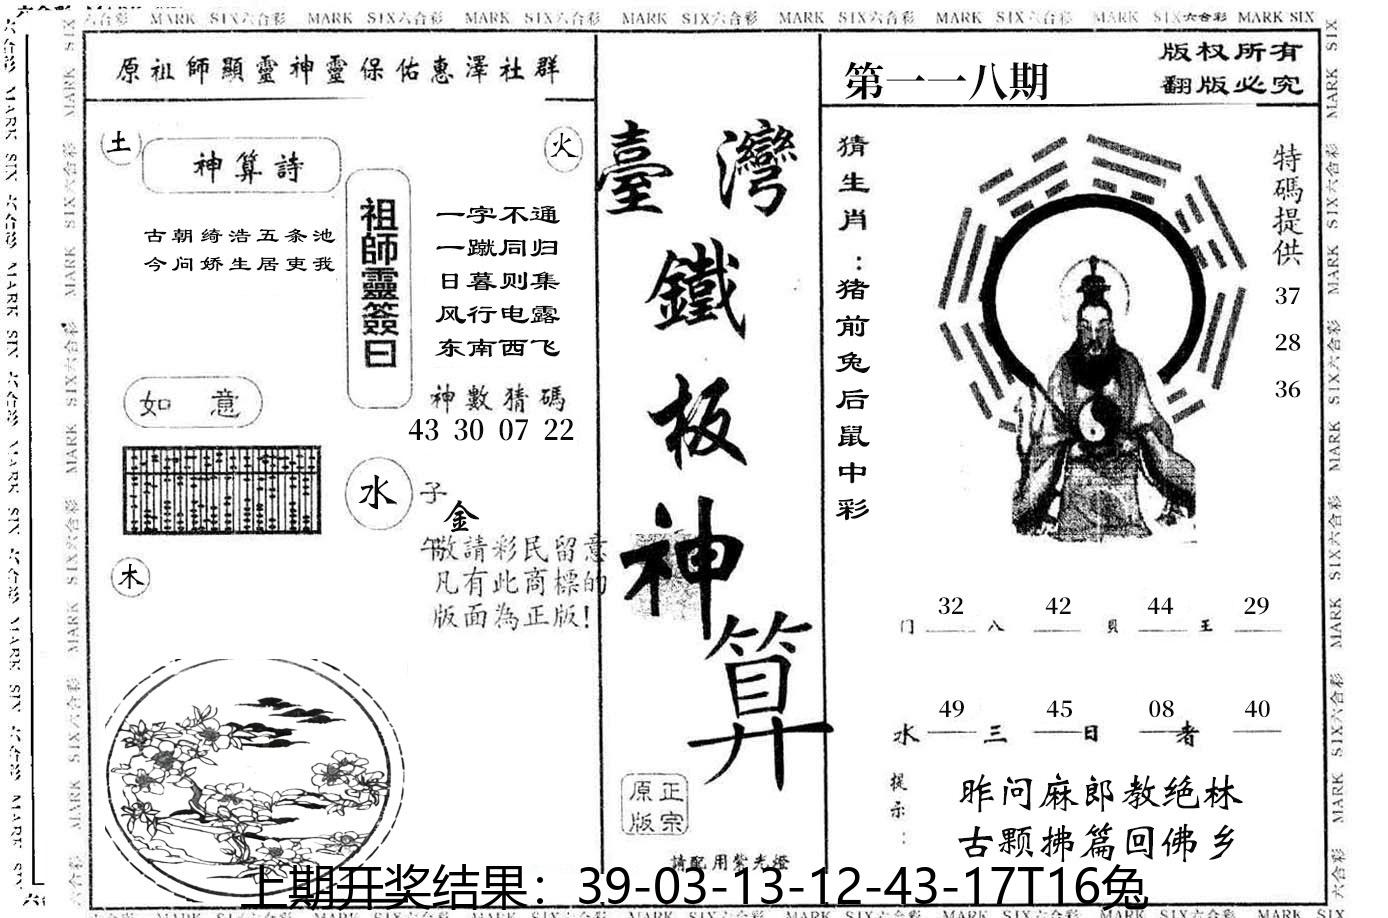 原祖師顯靈神靈保佑惠澤社群
土
神算詩
火
古朝绮浩五条池
今问娇生居吏我
祖師靈簽曰
一字不通
一蹴同归
日暮则集
风行电露
东南西飞
神數猜碼
43 30 07 22
如 意
水
子
金
午
敬請彩民留意
凡有此商標的
版面為正版!
木
臺灣
鐵
板
神
算
原正
版宗
請配用紫光燈
第一一八期
版权所有
翻版必究
猜生肖:猪前兔后鼠中彩
特碼提供
37
28
36
32 42 44 29
门 八 貝 王
49 45 08 40
水 三 日 者
提示:
昨问麻郎教绝林
古颗拂篇回佛乡
上期开奖结果：39-03-13-12-43-17T16兔
MARK SIX六合彩 MARK SIX六合彩 MARK SIX六合彩 MARK SIX六合彩 MARK SIX六合彩 MARK SIX六合彩 MARK SIX六合彩 MARK SIX